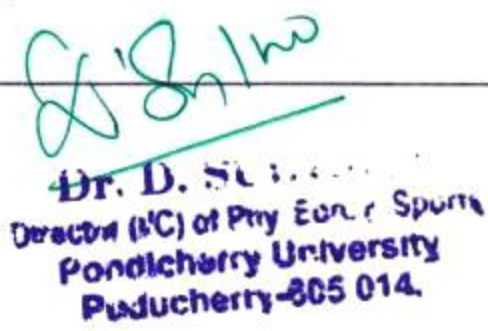 Dr. D.
Director (I/C) of Phy Edn & Sports
Pondicherry University
Puducherry-605 014.